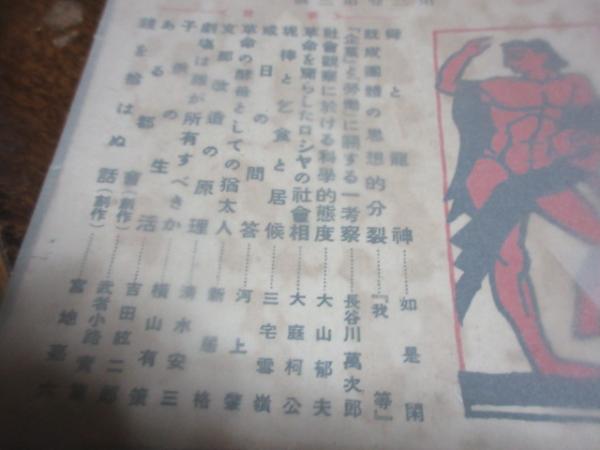 龍神……如是閑
既成團體の思想的分裂……『我等』
『企業』と勞働に關する一考察……長谷川萬次郎
社會觀察に於ける科學的態度……大山郁夫
革命を齎らしたロシヤの社會相……大庭柯公
泥棒と乞食と居候……三宅雪嶺
或日の問答……河上肇
革命の酵母としての猶太人……新居格
支那改造の原理……清水安三
劇場は誰が所有すべきか……横山有策
子供の都會生活
ある
吉田絃二郎
はぬ話(創作)……武者小路實篤
宮地嘉六